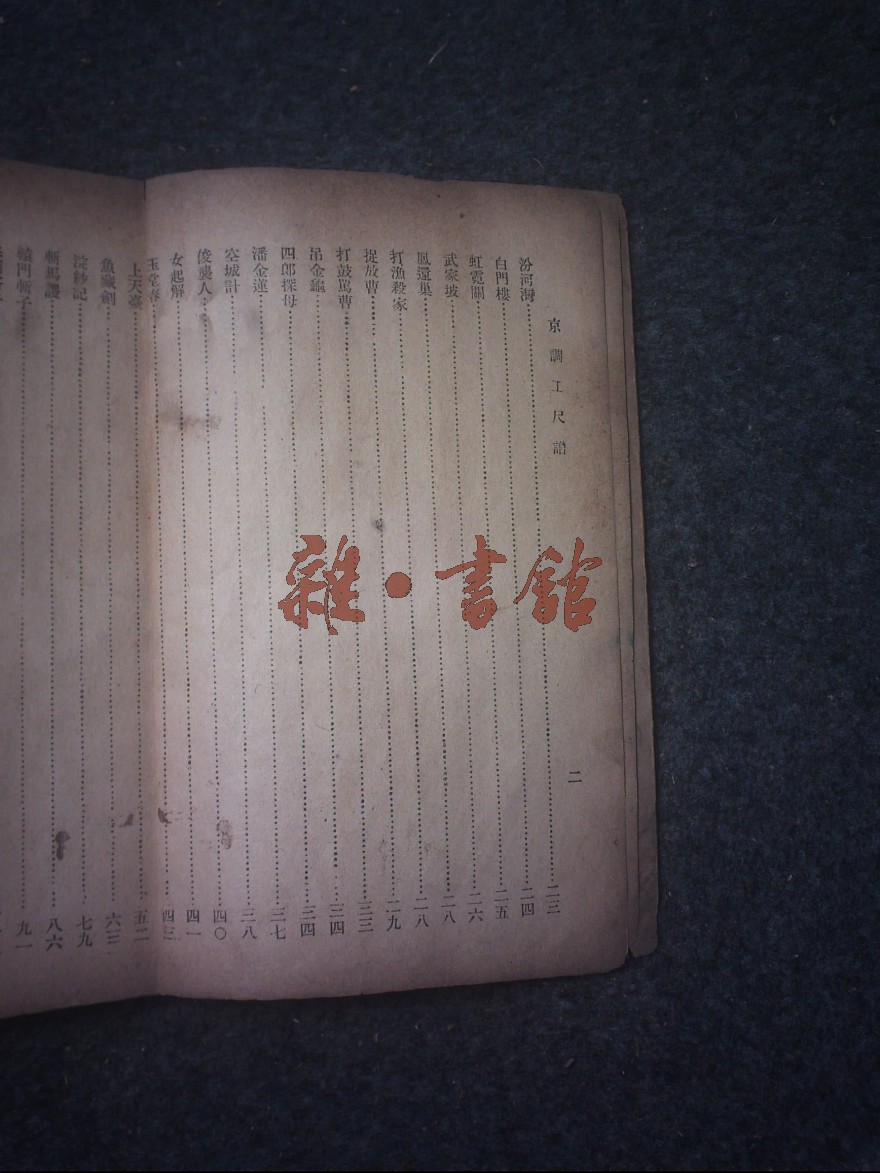 京調工尺譜 二
汾河灣……二三
白門樓……二四
虹霓關……二五
武家坡……二六
鳳還巢……二八
打漁殺家……二八
捉放曹……二九
打鼓罵曹……三三
吊金龜……三四
四郎探母……三四
潘金蓮……三七
空城計……三八
俊襲人……四〇
女起解……四一
玉堂春……四三
上天臺……五二
魚藏劍……六三
浣紗記……七九
斬馬謖……八六
轅門斬子……九一
雜·書館